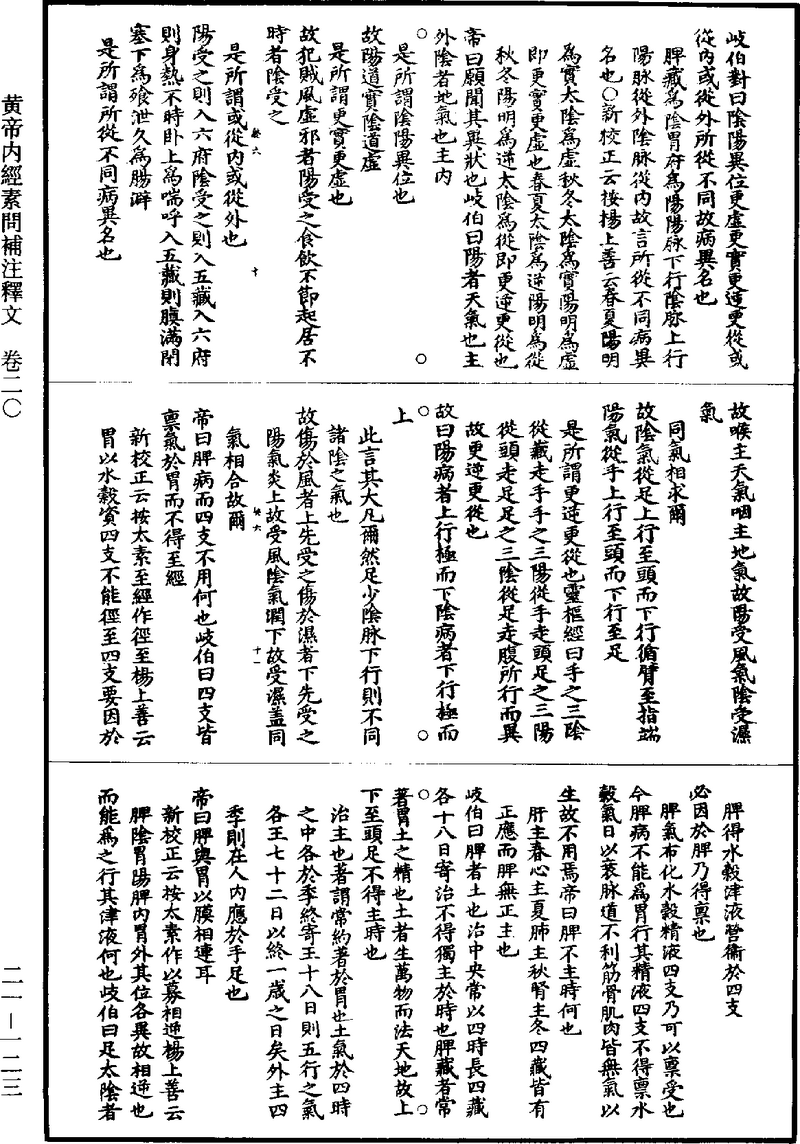 岐伯對曰陰陽異位更虛更實更逆更從或
從內或從外所從不同故病異名也
脾藏爲陰胃府爲陽陽脉下行陰脉上行
陽脉從外陰脉從內故言所從不同病異
名也○新校正云按楊上善云春夏陽明
爲實太陰爲虛秋冬太陰爲實陽明爲虛
即更實更虛也春夏太陰爲逆陽明爲從
秋冬陽明爲逆太陰爲從即更逆更從也
帝曰願聞其異狀也岐伯曰陽者天氣也主
外陰者地氣也主內
是所謂陰陽異位也
故陽道實陰道虛
是所謂更實更虛也
故犯賊風虛邪者陽受之食飲不節起居不
時者陰受之
是所謂或從內或從外也
陽受之則入六府陰受之則入五藏入六府
則身熱不時卧上爲喘呼入五藏則䐜滿閉
塞下爲飱泄久爲腸澼
是所謂所從不同病異名也
故喉主天氣咽主地氣故陽受風氣陰受濕
氣
同氣相求爾
故陰氣從足上行至頭而下行循臂至指端
陽氣從手上行至頭而下行至足
是所謂更逆更從也靈樞經曰手之三陰
從藏走手手之三陽從手走頭足之三陽
從頭走足足之三陰從足走腹所行而異
故更逆更從也
故曰陽病者上行極而下陰病者下行極而
上
此言其大凡爾然足少陰脉下行則不同
諸陰之氣也
故傷於風者上先受之傷於濕者下先受之
陽氣炎上故受風陰氣潤下故受濕蓋同
氣相合故爾
帝曰脾病而四支不用何也岐伯曰四支皆
禀氣於胃而不得至經
新校正云按太素至經作徑至楊上善云
胃以水穀資四支不能徑至四支要因於
脾得水穀津液營衛於四支
必因於脾乃得禀也
脾氣布化水穀精液四支乃可以禀受也
今脾病不能爲胃行其精液四支不得禀水
穀氣日以衰脉道不利筋骨肌肉皆無氣以
生故不用焉帝曰脾不主時何也
肝主春心主夏肺主秋腎主冬四藏皆有
正應而脾無正主也
岐伯曰脾者土也治中央常以四時長四藏
各十八日寄治不得獨主於時也脾藏者常
著胃土之精也土者生萬物而法天地故上
下至頭足不得主時也
治主也著謂常約著於胃也土氣於四時
之中各於季終寄王十八日則五行之氣
各王七十二日以終一歲之日矣外主四
季則在人內應於手足也
帝曰脾與胃以膜相連耳
新校正云按太素作以募相逆楊上善云
脾陰胃陽脾內胃外其位各異故相逆也
而能爲之行其津液何也岐伯曰足太陰者
黄帝内經素問補注釋文　卷二〇
二一—一二三